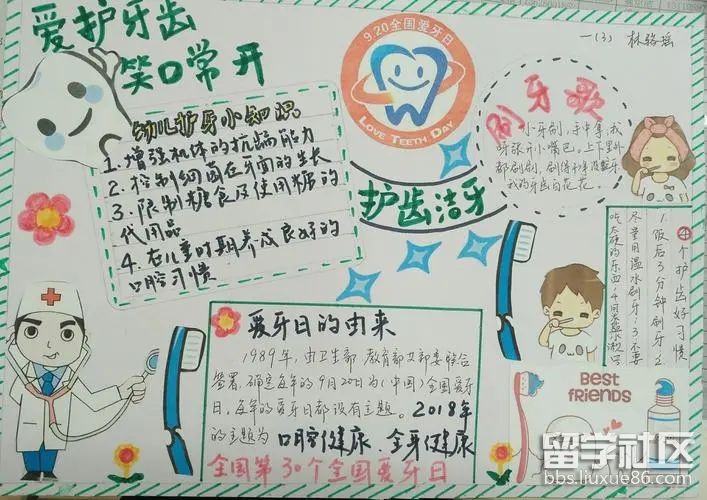 爱护牙齿
笑口常开
9.20全国爱牙日
LOVE TEETH DAY
一(3) 林骆瑶
幼儿护牙小知识
1.增强机体的抗龋能力
2.控制细菌在牙面的生长
3.限制糖食及使用糖的
代用品
4.在儿童时期养成良好的
口腔习惯
护齿洁牙
刷牙歌
小牙刷,手中拿,我
呀张开小嘴巴。上下里外
都刷刷,
我的牙齿白花花。
4个护齿好习惯
1.饭后3分钟刷牙;2.
尽量用温水刷牙;3.不要
吃太硬的东西;4.
爱牙日的由来
1989年,由卫生部、教育部九部委联合
签署,确定每年的9月20日为(中国)全国爱牙
日,每年的爱牙日都设有主题。2018年
的主题为口腔健康 全身健康
全国第30个全国爱牙日
BEST
FRIENDS
留学社区
bbs.liuxue86.com